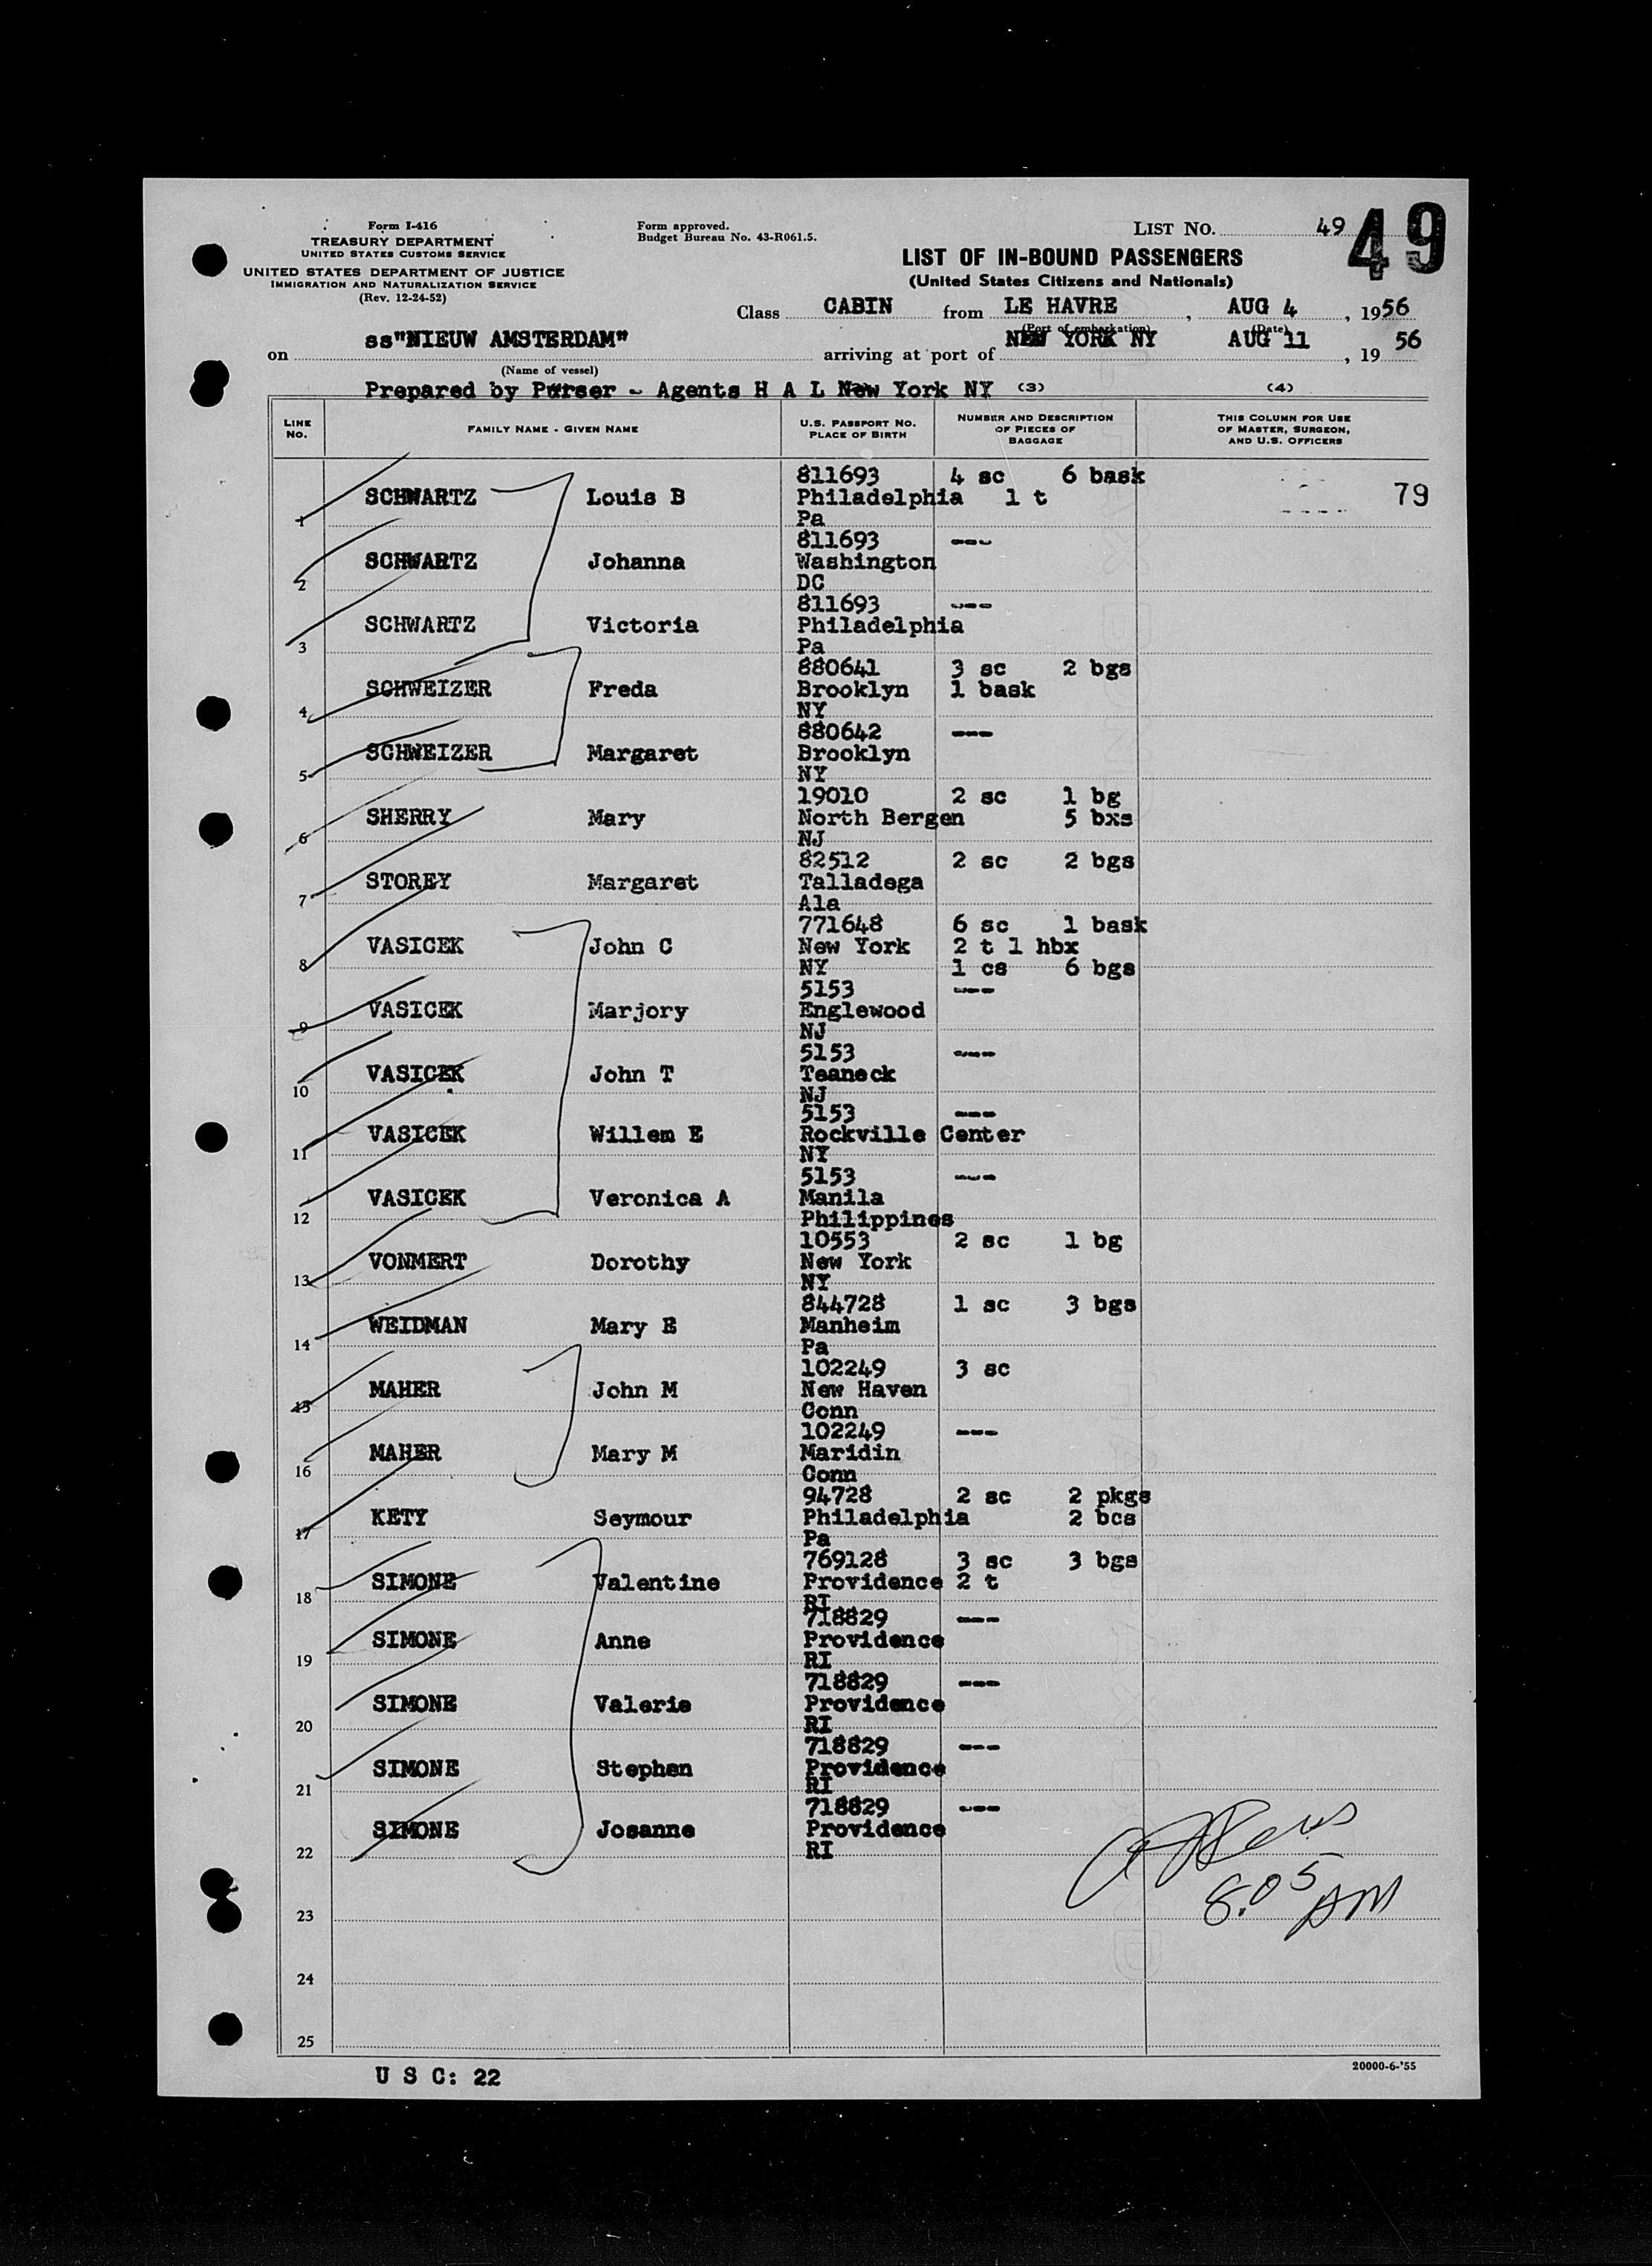 Form I-416
TREASURY DEPARTMENT
UNITED STATES CUSTOMS SERVICE
UNITED STATES DEPARTMENT OF JUSTICE
IMMIGRATION AND NATURALIZATION SERVICE
(Rev. 12-24-52)
Form approved.
Budget Bureau No. 43-R061.5.
LIST NO. 49 49
LIST OF IN-BOUND PASSENGERS
(United States Citizens and Nationals)
Class CABIN from LE HAVRE, AUG 4, 1956
(Port of embarkation) (Date)
on ss"NIEUW AMSTERDAM" arriving at port of NEW YORK NY AUG 11, 19 56
(Name of vessel)
Prepared by Purser - Agents H A L New York NY (3) (4)
LINE NO. FAMILY NAME - GIVEN NAME U.S. PASSPORT NO. PLACE OF BIRTH NUMBER AND DESCRIPTION OF PIECES OF BAGGAGE THIS COLUMN FOR USE OF MASTER, SURGEON, AND U.S. OFFICERS
811693 4 sc 6 bask
SCHWARTZ Louis B Philadelphia 1 t 79
1 Pa
811693 ---
SCHWARTZ Johanna Washington
2 DC
811693 ---
SCHWARTZ Victoria Philadelphia
3 Pa
880641 3 sc 2 bgs
SCHWEIZER Freda Brooklyn 1 bask
4 NY
880642 ---
SCHWEIZER Margaret Brooklyn
5 NY
19010 2 sc 1 bg
SHERRY Mary North Bergen 5 bxs
6 NJ
82512 2 sc 2 bgs
STOREY Margaret Talladega
7 Ala
771648 6 sc 1 bask
VASICEK John C New York 2 t 1 hbx
8 NY 1 cs 6 bgs
5153 ---
VASICEK Marjory Englewood
9 NJ
5153 ---
VASICEK John T Teaneck
10 NJ
5153 ---
VASICEK Willem E Rockville Center
11 NY
5153 ---
VASICEK Veronica A Manila
12 Philippines
10553 2 sc 1 bg
VONMERT Dorothy New York
13 NY
844728 1 sc 3 bgs
WEIDMAN Mary E Manheim
14 Pa
102249 3 sc
MAHER John M New Haven
15 Conn
102249 ---
MAHER Mary M Maridin
16 Conn
94728 2 sc 2 pkgs
KETY Seymour Philadelphia 2 bcs
17 Pa
769128 3 sc 3 bgs
SIMONE Valentine Providence 2 t
18 RI
718829 ---
SIMONE Anne Providence
19 RI
718829 ---
SIMONE Valerie Providence
20 RI
718829 ---
SIMONE Stephen Providence
21 RI
718829 ---
SIMONE Josanne Providence
22 RI
8.05 AM
23
24
25
U S C: 22
20000-6-'55